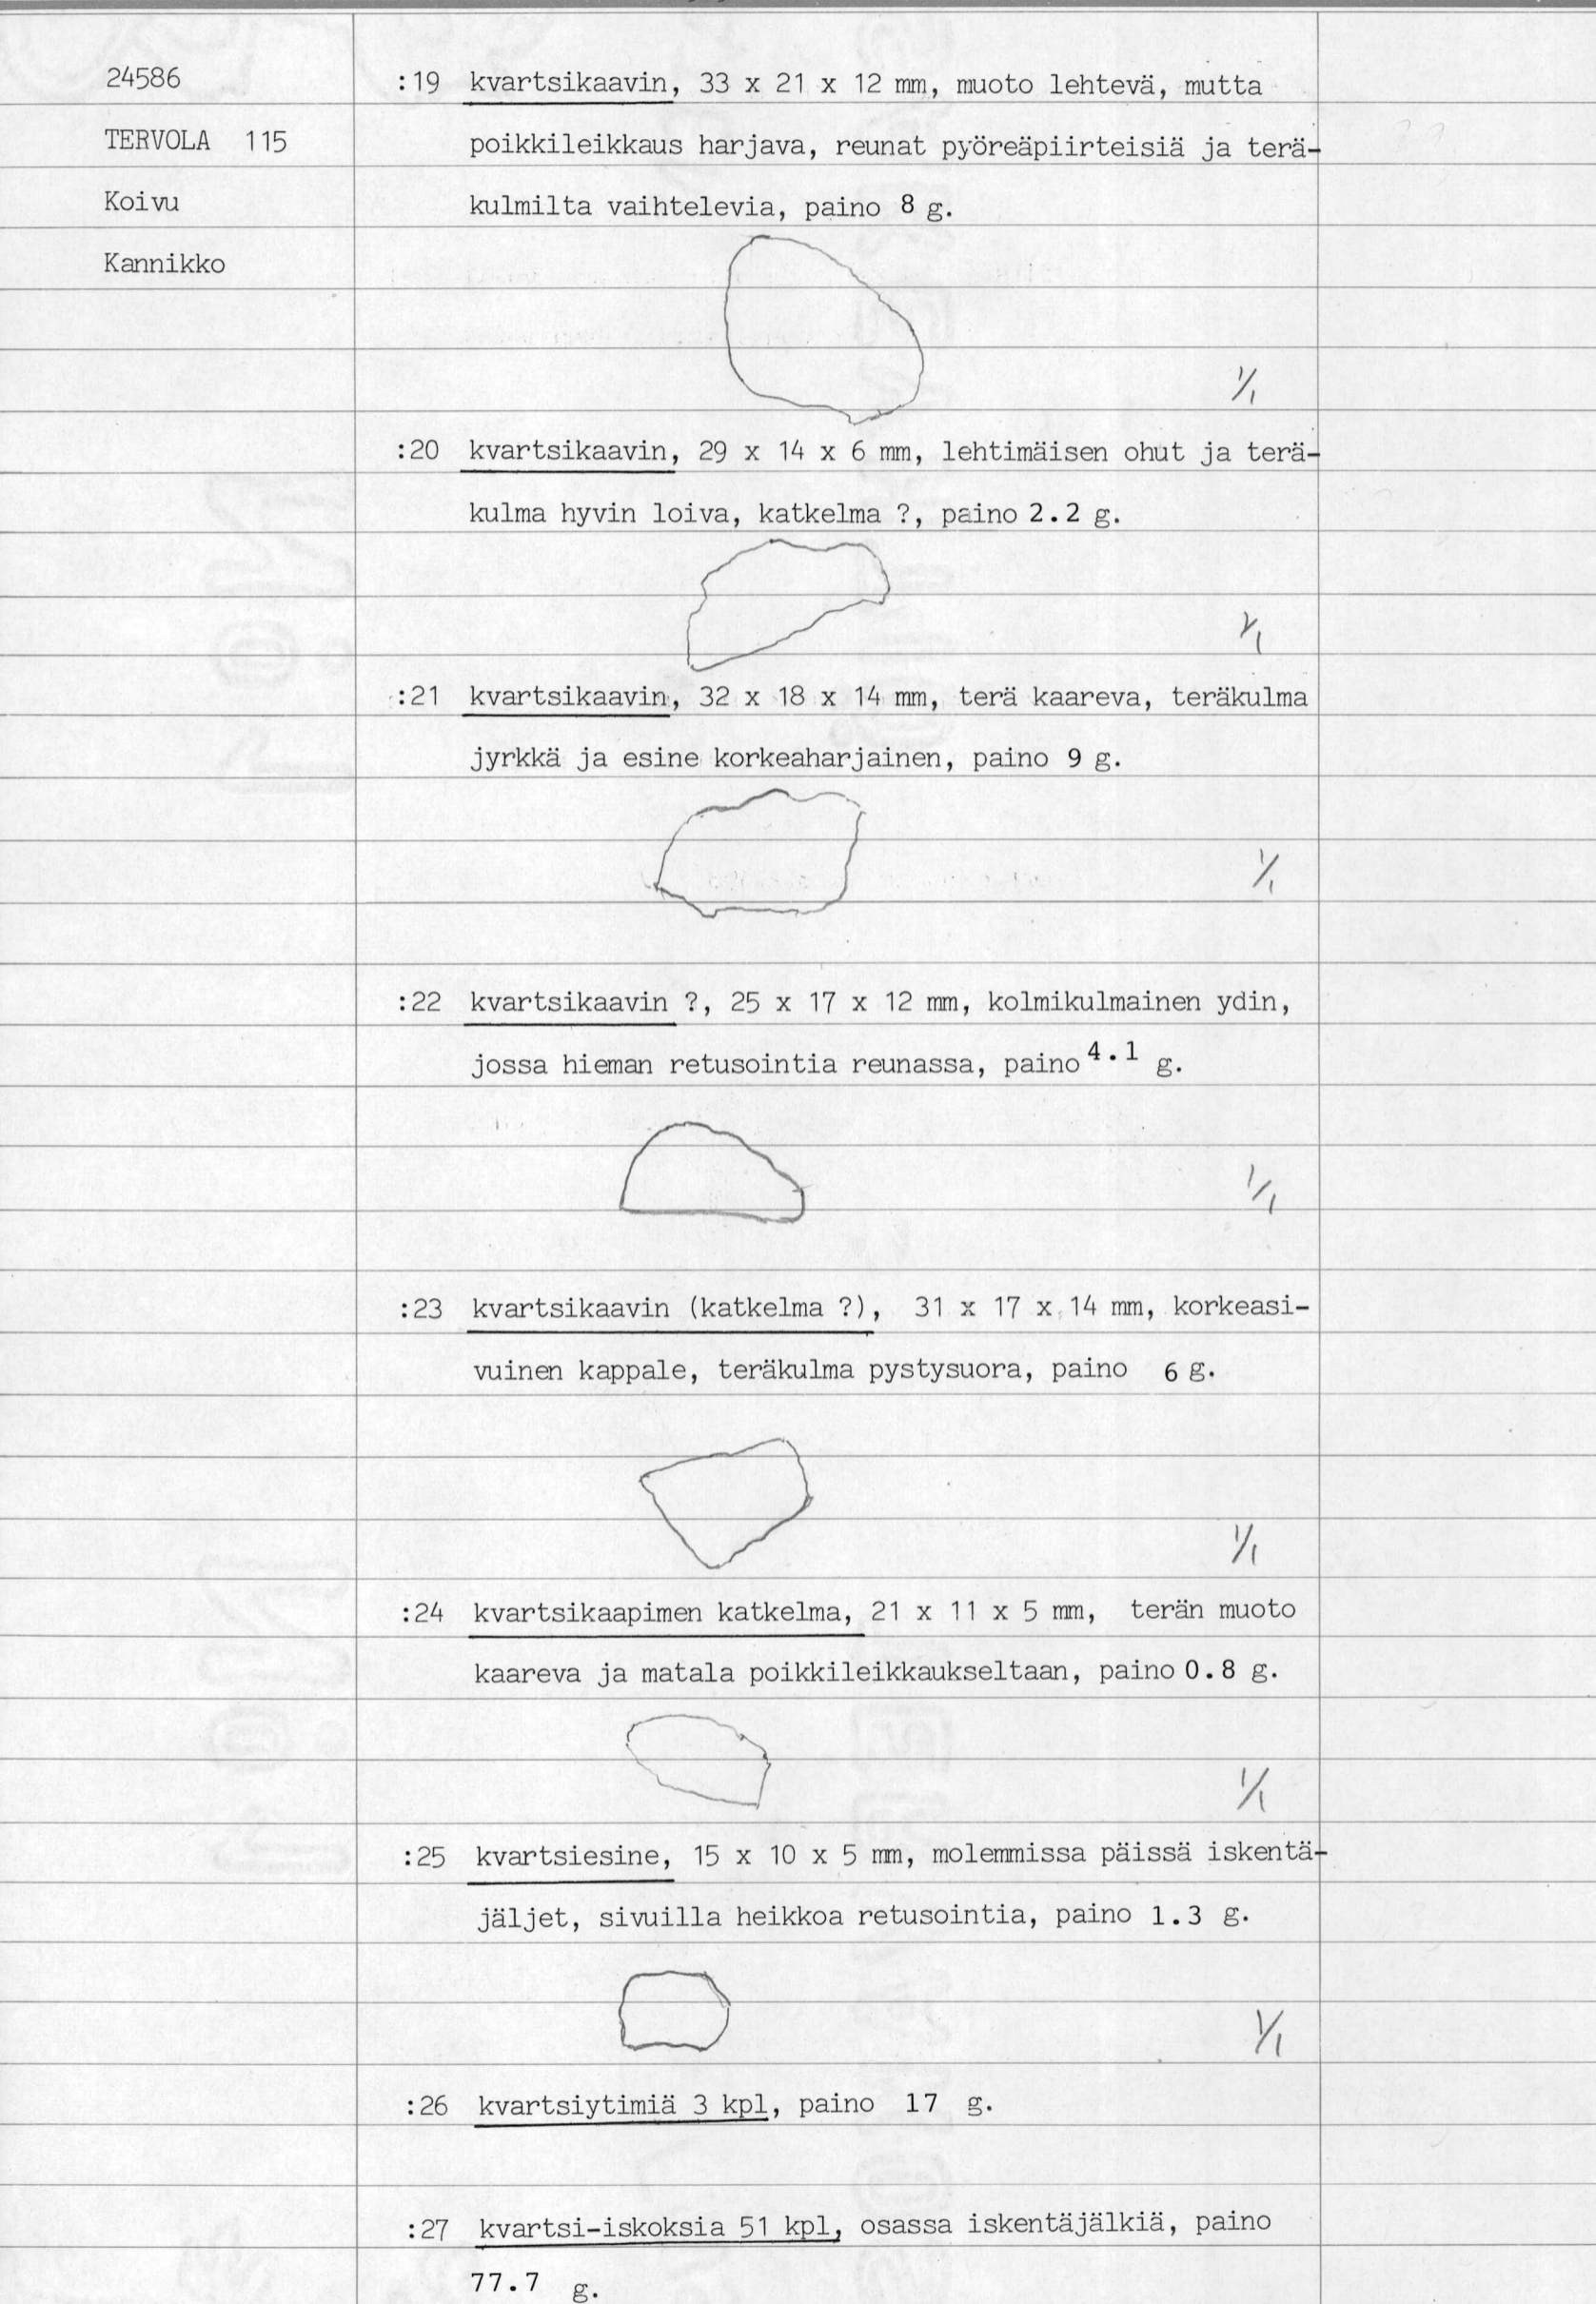 24586
TERVOLA 115
Koivu
Kannikko
:19 kvartsikaavin, 33 x 21 x 12 mm, muoto lehtevä, mutta
poikkileikkaus harjava, reunat pyöreäpiirteisiä ja terä-
kulmilta vaihtelevia, paino 8 g.
1/1
:20 kvartsikaavin, 29 x 14 x 6 mm, lehtimäisen ohut ja terä-
kulma hyvin loiva, katkelma ?, paino 2.2 g.
1/1
:21 kvartsikaavin, 32 x 18 x 14 mm, terä kaareva, teräkulma
jyrkkä ja esine korkeaharjainen, paino 9 g.
1/1
:22 kvartsikaavin ?, 25 x 17 x 12 mm, kolmikulmainen ydin,
jossa hieman retusointia reunassa, paino 4.1 g.
1/1
:23 kvartsikaavin (katkelma ?), 31 x 17 x 14 mm, korkeasi-
vuinen kappale, teräkulma pystysuora, paino 6 g.
1/1
:24 kvartsikaapimen katkelma, 21 x 11 x 5 mm, terän muoto
kaareva ja matala poikkileikkaukseltaan, paino 0.8 g.
1/1
:25 kvartsiesine, 15 x 10 x 5 mm, molemmissa päissä iskentä-
jäljet, sivuilla heikkoa retusointia, paino 1.3 g.
1/1
:26 kvartsiytimiä 3 kpl, paino 17 g.
:27 kvartsi-iskoksia 51 kpl, osassa iskentäjälkiä, paino
77.7 g.